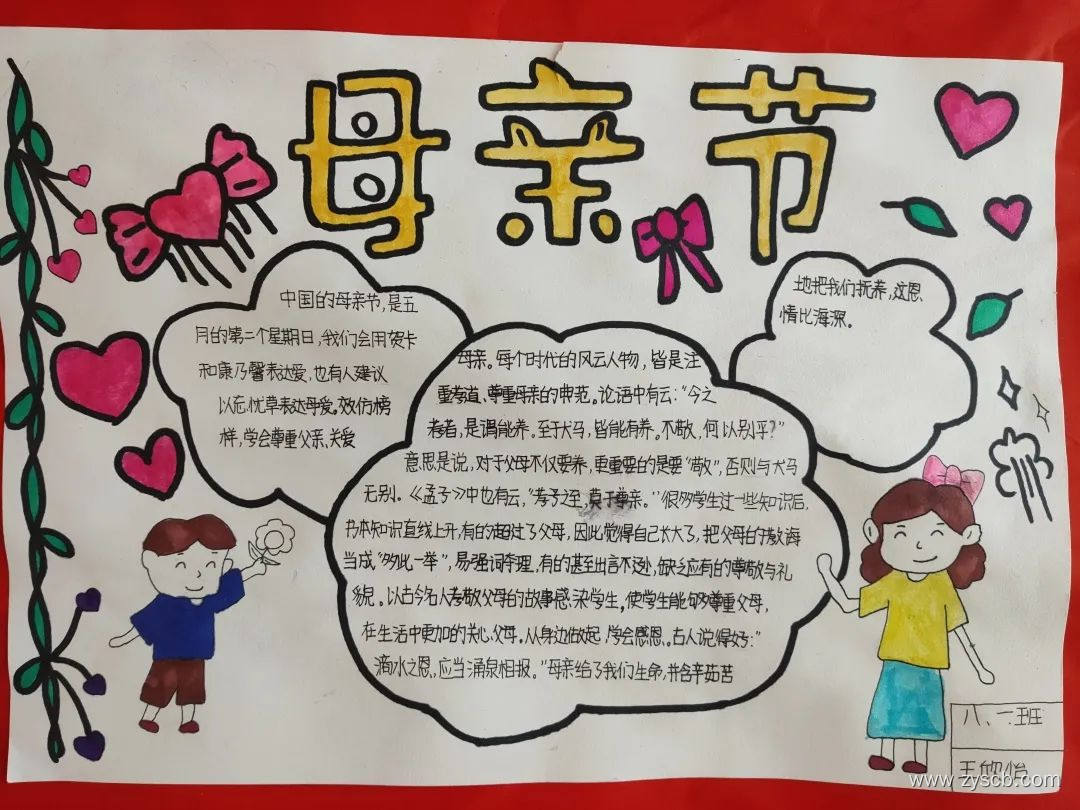 母亲节
中国的母亲节,是五
月的第二个星期日,我们会用贺卡
和康乃馨表达爱,也有人建议
以忘忧草表达母爱。效仿榜
样,学会尊重父亲、关爱
母亲。每个时代的风云人物,皆是注
重孝道、尊重母亲的典范。论语中有云:“今之
孝者,是谓能养。至于犬马,皆能有养。不敬,何以别乎?”
意思是说,对于父母不仅要养,更重要的是要“敬”,否则与犬马
无别。《孟子》中也有云,“孝子之至,莫于尊亲。”很多学生过一些知识后,
书本知识直线上升,有的超过了父母,因此觉得自己长大了,把父母的教诲
当成“多此一举”,易强词夺理,有的甚至出言不逊,缺乏应有的尊敬与礼
貌。以古今名人孝敬父母的故事感染学生。使学生能够尊重父母,
在生活中更加的关心父母。从身边做起,学会感恩。古人说得好:“
滴水之恩,应当涌泉相报。”母亲给了我们生命,并含辛茹苦
地把我们抚养,这恩、
情比海深。
八、二班
王欣怡
www.zyscb.com